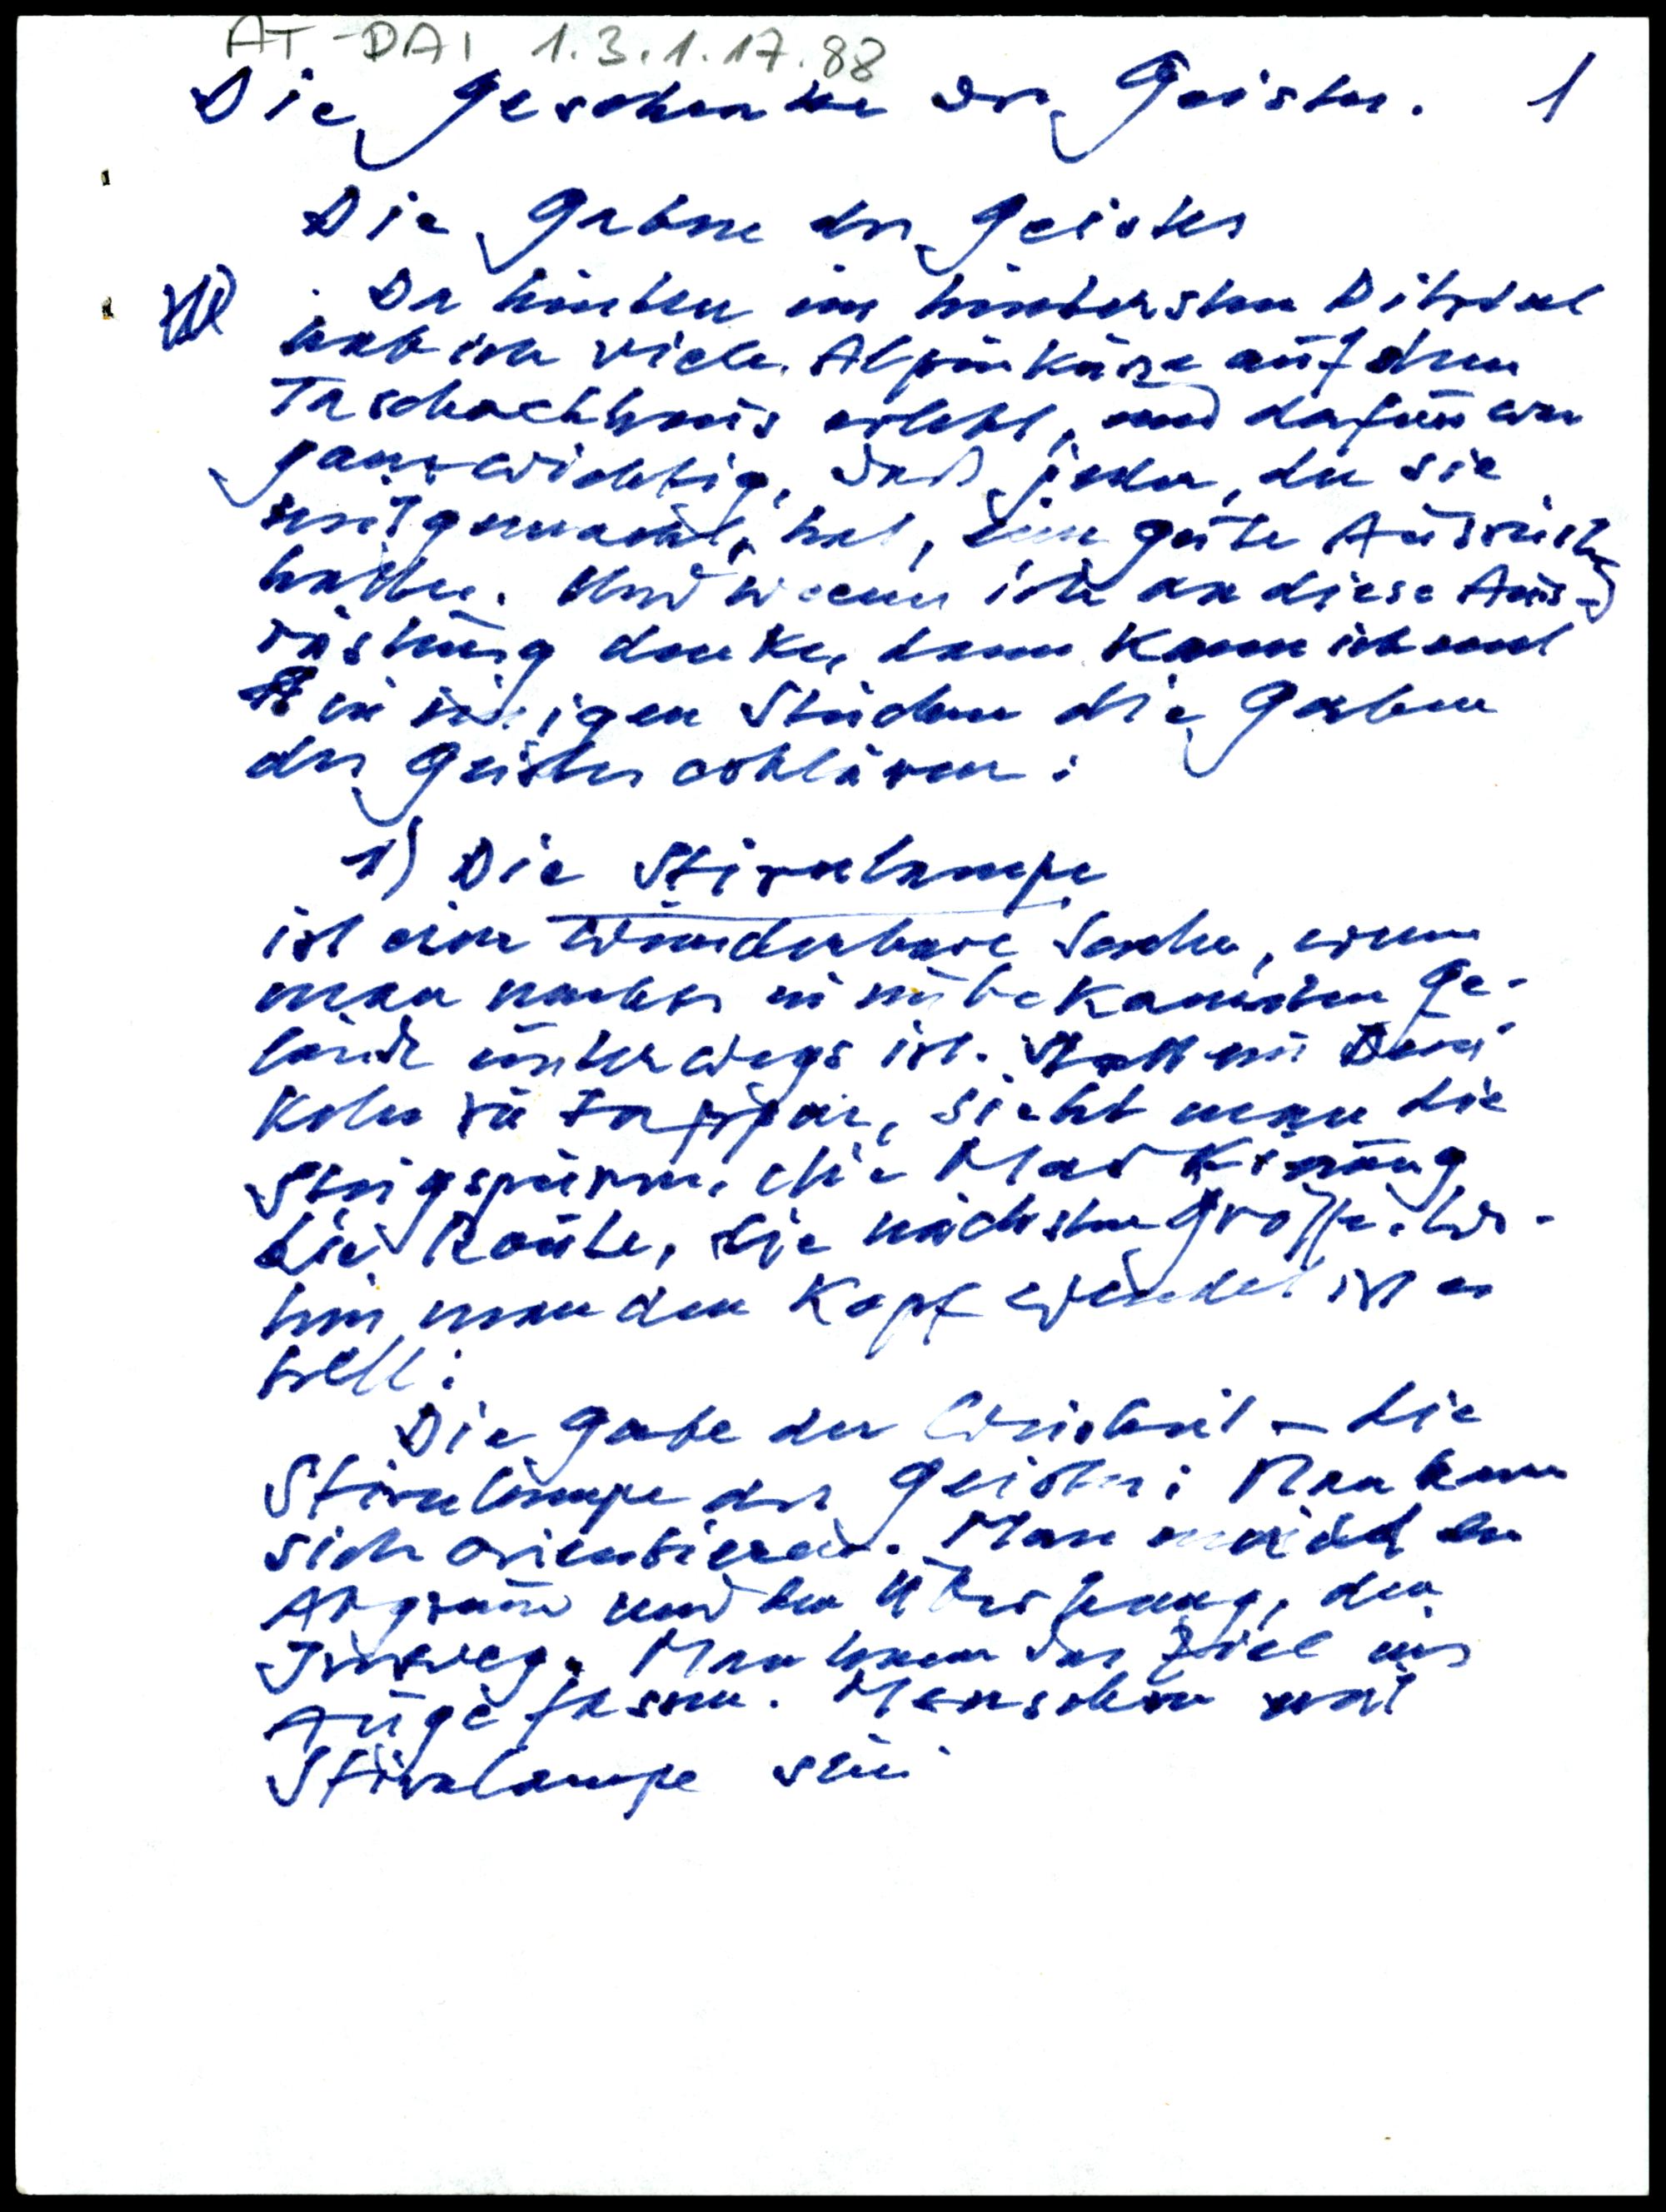 AT-DAI 1.3.1.17.88
Die Geschenke des Geistes. 1
Die Gaben des Geistes
Da hinten im hintersten Pitztal
hab ich viele Alpinkurse auf dem
Taschachhaus erlebt, und dafür war
ganz wichtig, daß jeder, der sie
mitgemacht hat, eine gute Ausrüstung
hatte. Und wenn ich an diese Aus-
rüstung denke, dann kann ich mit
in einigen Stücken die Gaben
des Geistes erklären:
1) Die Stirnlampe
ist eine wunderbare Sache, wenn
man nachts in unbekanntem Ge-
lände unterwegs ist. Statt im Dun-
keln zu tappen, sieht man die
Steigspuren, die Markierung
die Route, die nächsten Griffe. Wo-
hin man den Kopf wendet ist es
hell:
Die Gabe der Weisheit – die
Stirnlampe des Geistes: Man kann
sich orientieren. Man meidet den
Abgrund und den Überhang, den
Irrweg. Man kann das Ziel ins
Auge fassen. Menschen mit
Stirnlampe